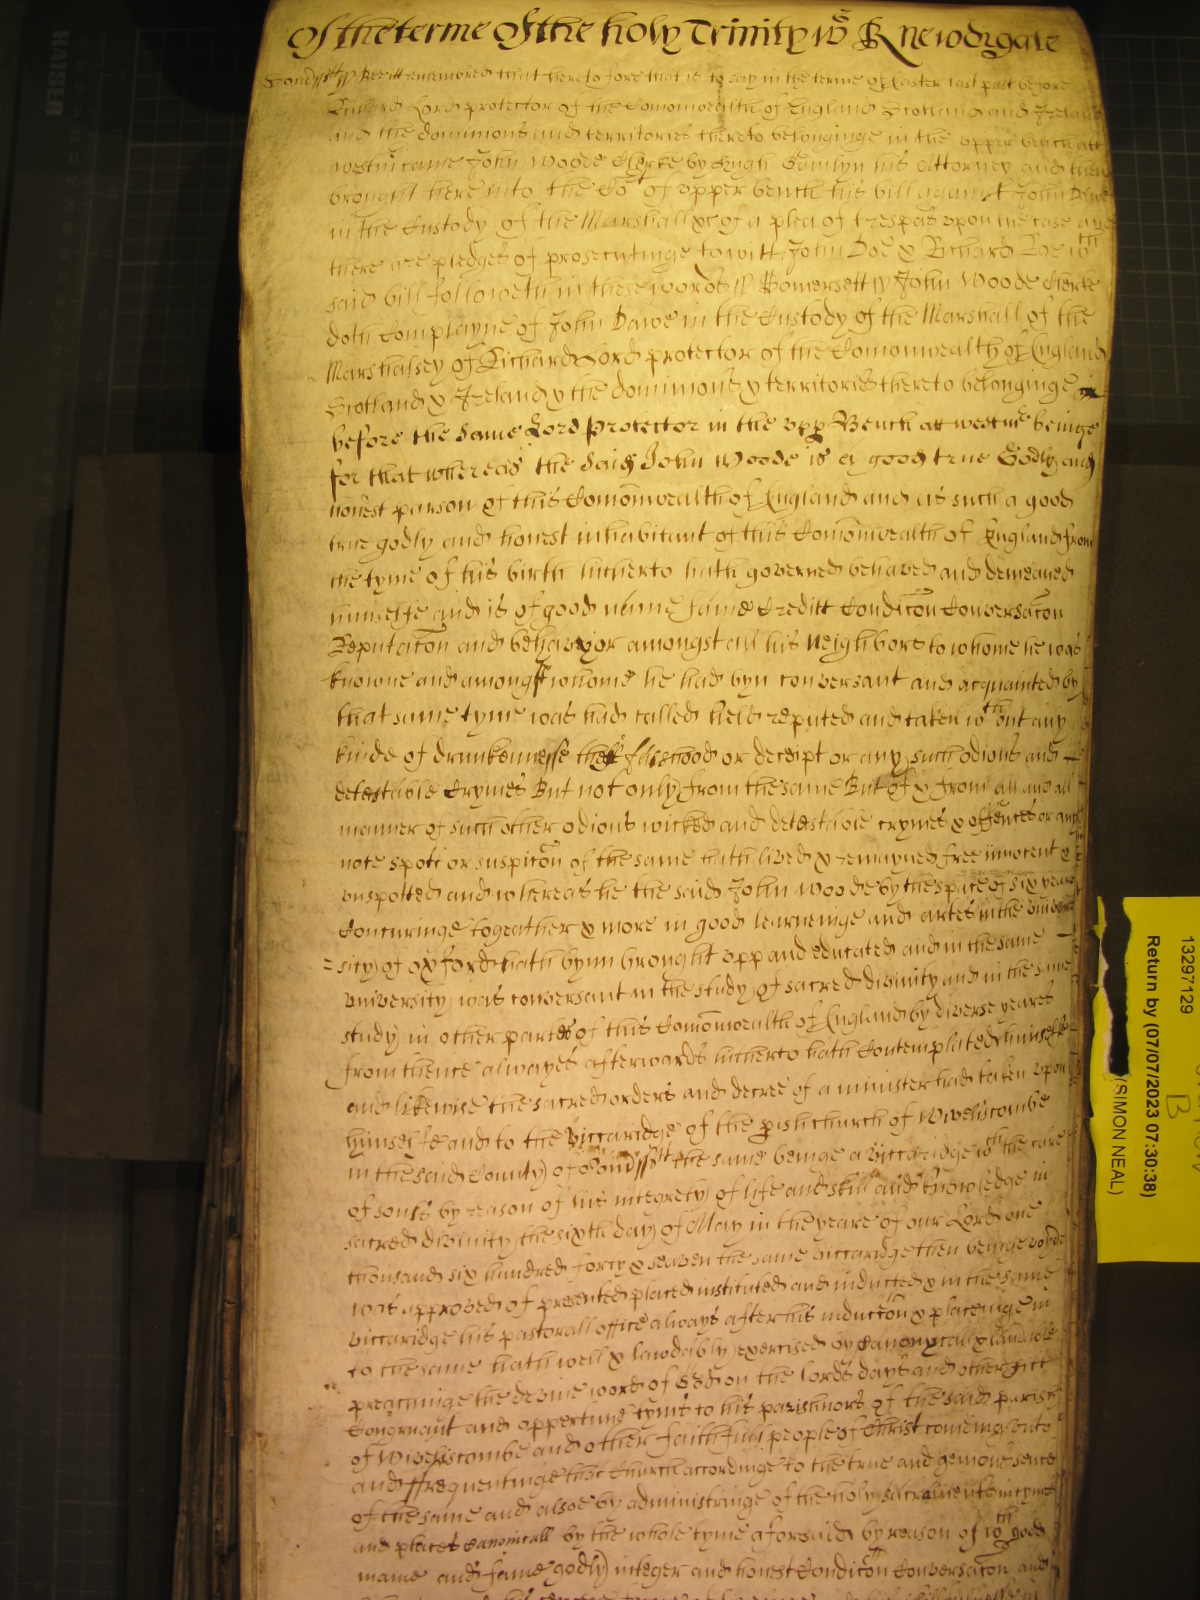 Of the terme Of the holy Trinity 1658 R Newdigate
Somss.tt ss Bee itt remembred that heretofore that is to say in the terme of Easter last past before
Richard Lord protector of the Comonwealth of England Scotland and Ireland
and the dominions and territories thereto belonginge in the upper bench att
westm came John Woode Clerke by Hugh Gamlyn his Attorney and then
brought here into the Cort of upper bench his bill against John Dawe
in the Custody of the Marshall &c of a plea of trespas upon the case and
there are pledges of prosecutinge to witt John Doe & Richard Roe wch
said bill followeth in these words ss Somersett ss John Woode Clerke
doth Complayne of John Dawe in the Custody of the Marshall of the
Marshalsey of Richard Lord protector of the Comonwealth of England
Scotland & Ireland & the dominions & territories thereto belonginge
before the same Lord Protector in the upp Bench att westmr beinge
for that whereas the said John Woode is a good true Godly and
honest parson of this Comonwealth of England and as such a good
true godly and honest inhabitant of this Comonwealth of England from
the tyme of his birth hitherto hath governed behaved and demeaned
himselfe and is of good name fame Creditt Condicon Conversacon
Reputacon and behavior amongst all his Neighbors to whome he was
knowne and amongst whome he had byn conversant and acquainted by
that same tyme was had called held reputed and taken wthout any
kinde of drunkennesse theft falshood or deceipt or any such odious and
detestable Crymes But not only from the same But of & from all and all
manner of such other odious wicked and detestable crymes & offences or any
note spott or suspicon of the same hath lived & remayned free inocent &
unspotted and whereas he the said John Woode by the space of six years
Concuringe togeather & more in good learneinge and artes in the univer
=sity of oxford hath bynn brought upp and educated and in the same
university was conversant in the study of sacred divinity and in the same
study in other partes of this Comonwealth of England by diverse yeares
from thence alwayes afterwards hitherto hath Contemplated himselfe
and likewise the sacred orders and decree of a minister had taken upon
himselfe and to the Viccaridge of the pish church of Wiveliscombe
in the said County of Somss.tt the same beinge a Viccaridge wth the care
of souls by reason of his integrety of life and skill and knowledge in
sacred divinity the sixth day of May in the yeare of our Lord one
thousand six hundred forty & seaven the same viccaridge then beinge voyde
was approved of presented placed instituted and inducted & in the same
viccaridge his pastorall office always after his inducton & placeinge in
to the same hath well & lawdably exercised by Canonycall & laudable
preachinge the devine word of God on the lords days and other fitt
Congruent and oppertune tyms to his parishnors of the said parish
of Wiveliscombe and other faithfull people of Christ comeing unto
and frequentinge that Church accordinge to the true and genione sence
of the same and alsoe by administringe of the holy sacraments in tymes
and places Canonicall by the whole tyme aforesaid by reason of wch good
name and fame godly integer and honest Condicon Conversacon and
13297129
Return by (07/07/2023 07:30:38)
(SIMON NEAL)
B